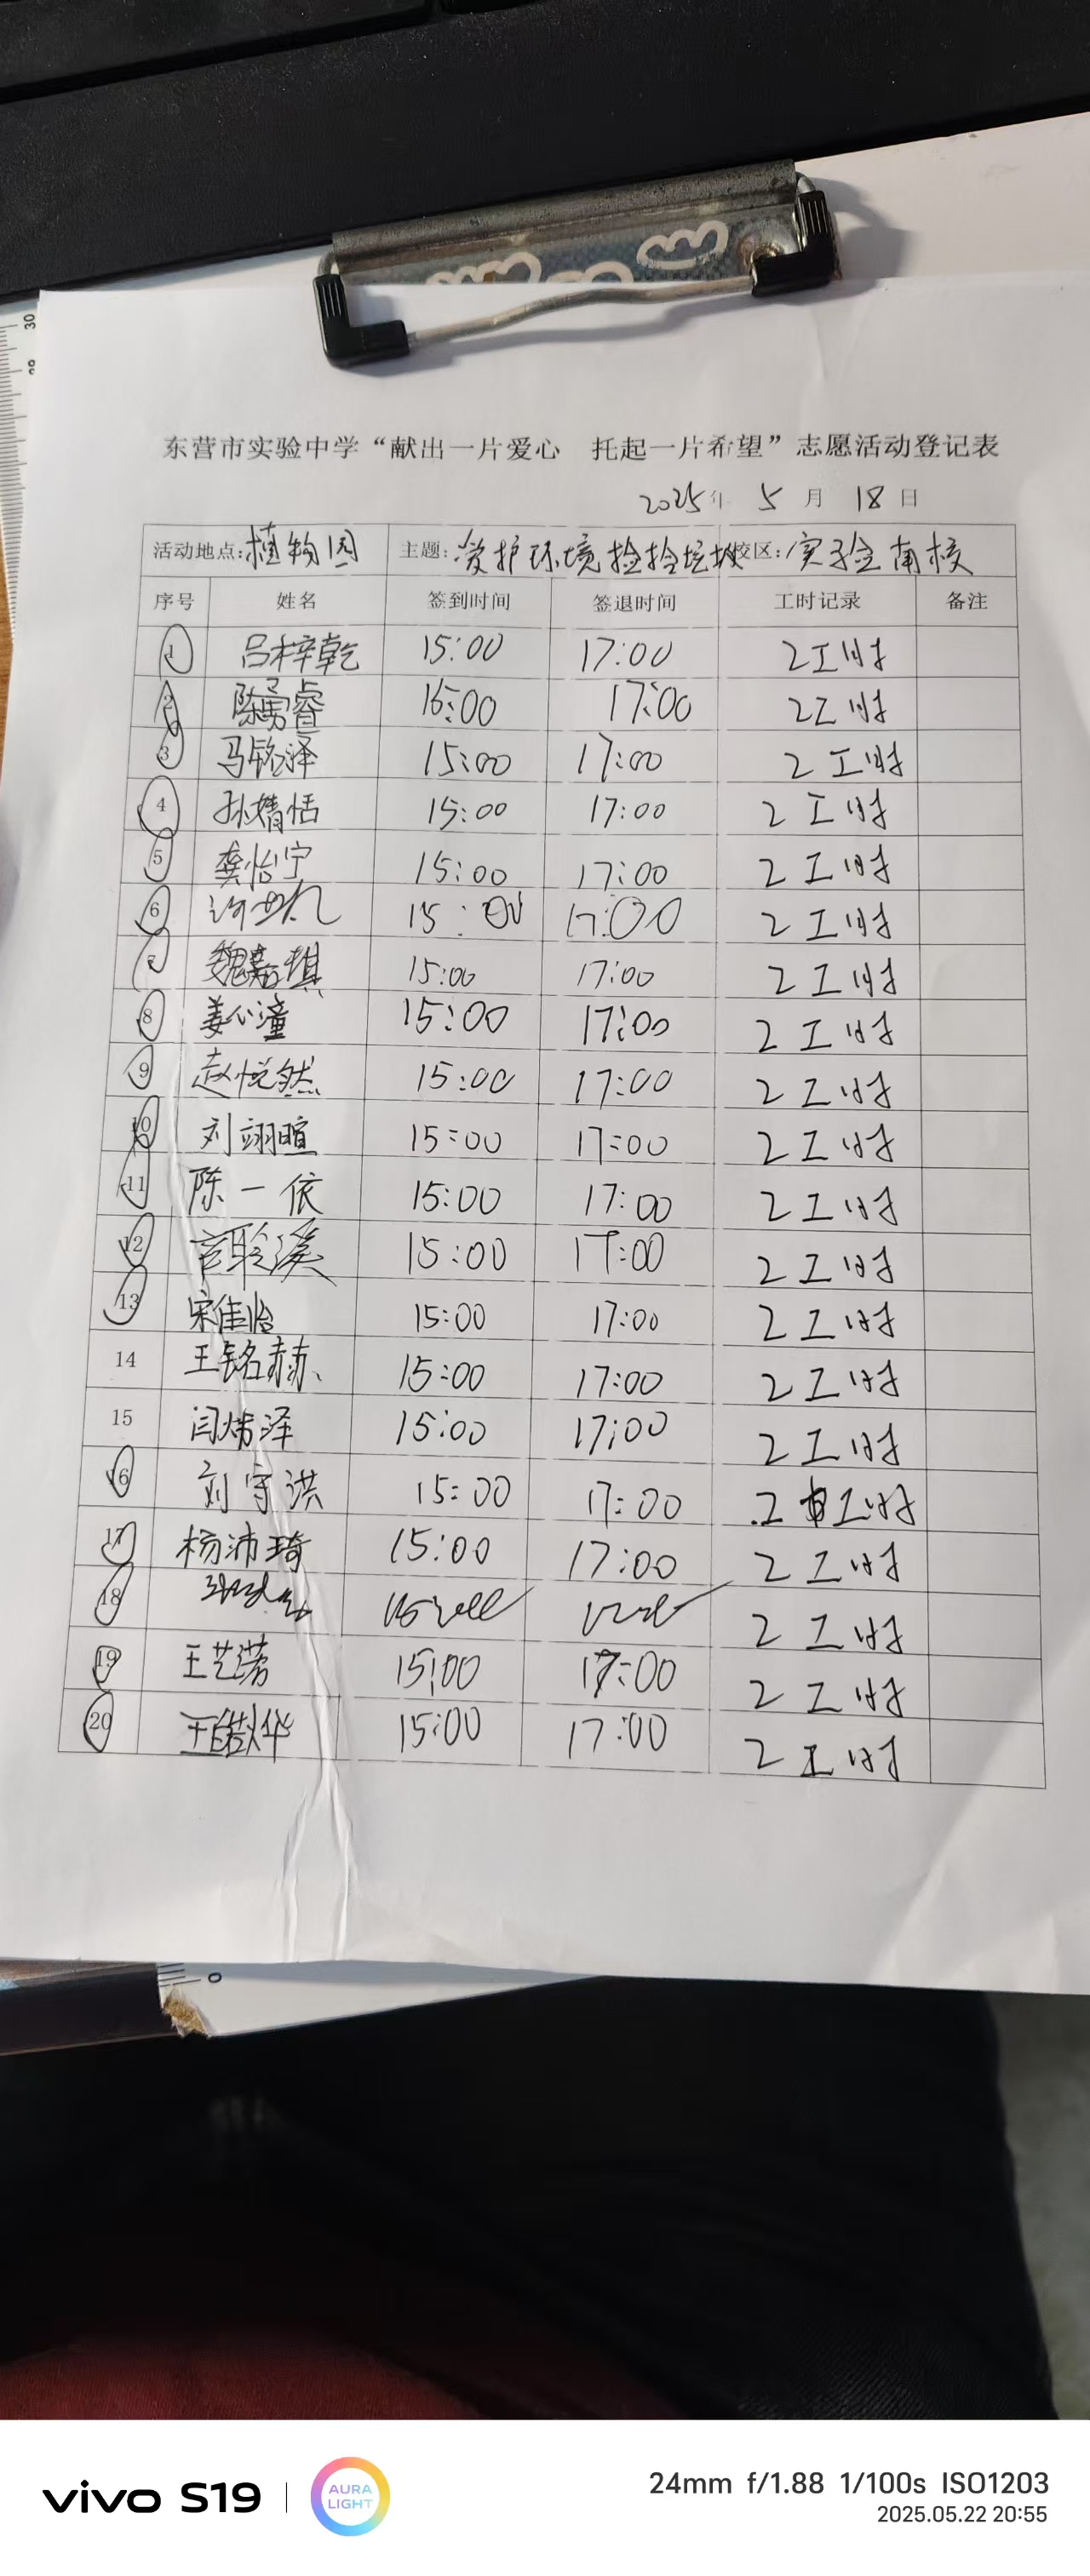 30
东营市实验中学“献出一片爱心 托起一片希望”志愿活动登记表
2025年 5 月 18 日
活动地点:植物园 主题:爱护环境捡拾垃圾 校区:实验南校
序号 姓名 签到时间 签退时间 工时记录 备注
1 吕梓乾 15:00 17:00 2工时
2 陈勇睿 15:00 17:00 2工时
3 马铭泽 15:00 17:00 2工时
4 孙婧恬 15:00 17:00 2工时
5 龚怡宁 15:00 17:00 2工时
6 15:00 17:00 2工时
7 魏嘉琪 15:00 17:00 2工时
8 姜心潼 15:00 17:00 2工时
9 赵悦然 15:00 17:00 2工时
10 刘翊暄 15:00 17:00 2工时
11 陈一依 15:00 17:00 2工时
12 15:00 17:00 2工时
13 宋佳怡 15:00 17:00 2工时
14 王铭赫 15:00 17:00 2工时
15 闫炜泽 15:00 17:00 2工时
16 刘宇洪 15:00 17:00 2工时
17 杨沛琦 15:00 17:00 2工时
18 2工时
19 王艺涝 15:00 17:00 2工时
20 王皓华 15:00 17:00 2工时
0
vivo S19 AURA LIGHT 24mm f/1.88 1/100s ISO1203
2025.05.22 20:55